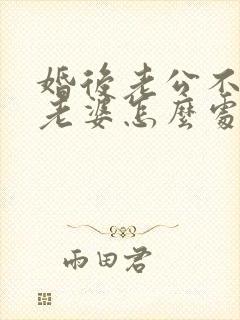 婚後老公不
老婆怎麼處
雨田君